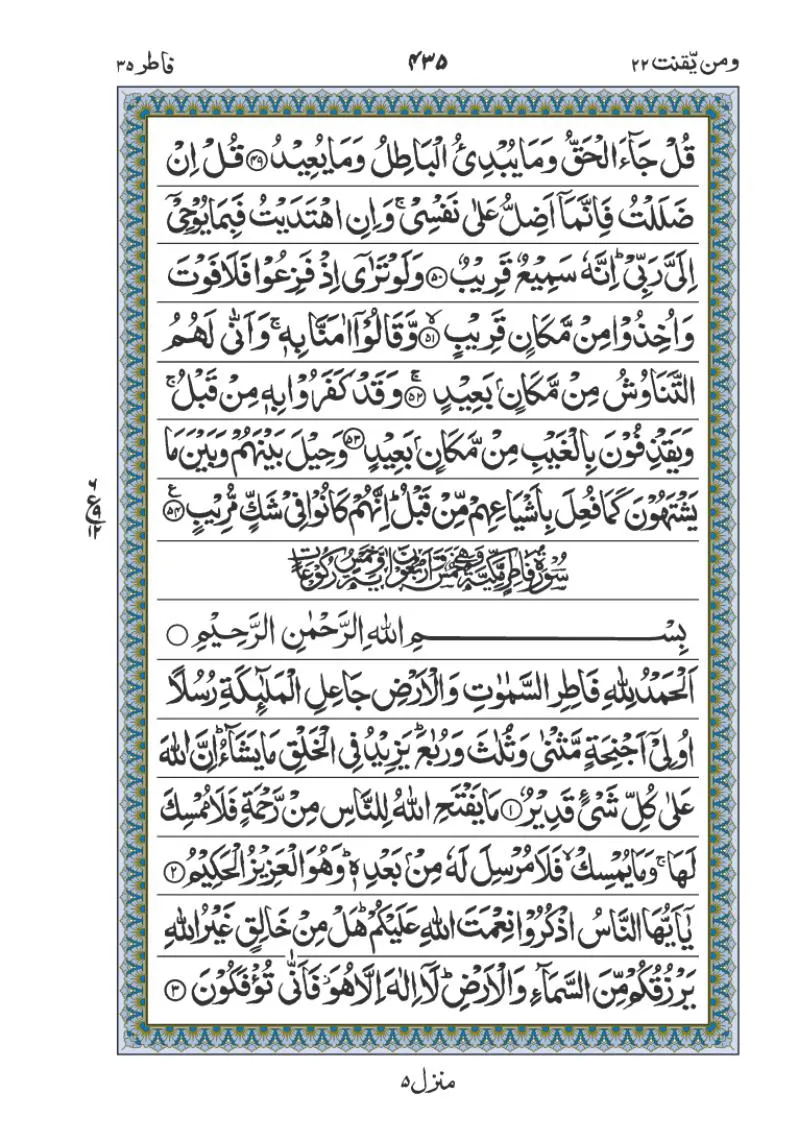 ومن یّقنت ۲۲ ۴۳۵ فاطر ۳۵
قُلْ جَآءَ الْحَقُّ وَمَا یُبْدِئُ الْبَاطِلُ وَمَا یُعِیْدُ ﴿۴۹﴾ قُلْ اِنْ
ضَلَلْتُ فَاِنَّمَاۤ اَضِلُّ عَلٰی نَفْسِیْ ۚ وَاِنِ اهْتَدَیْتُ فَبِمَا یُوْحِیْۤ
اِلَیَّ رَبِّیْ ؕ اِنَّهٗ سَمِیْعٌ قَرِیْبٌ ﴿۵۰﴾ وَلَوْ تَرٰۤی اِذْ فَزِعُوْا فَلَا فَوْتَ
وَاُخِذُوْا مِنْ مَّکَانٍ قَرِیْبٍ ﴿۵۱﴾ۙ وَّقَالُوْۤا اٰمَنَّا بِهٖ ۚ وَاَنّٰی لَهُمُ
التَّنَاوُشُ مِنْ مَّکَانٍۭ بَعِیْدٍ ﴿۵۲﴾ۚ وَقَدْ کَفَرُوْا بِهٖ مِنْ قَبْلُ ۚ
وَیَقْذِفُوْنَ بِالْغَیْبِ مِنْ مَّکَانٍۭ بَعِیْدٍ ﴿۵۳﴾ وَحِیْلَ بَیْنَهُمْ وَبَیْنَ مَا
یَشْتَهُوْنَ کَمَا فُعِلَ بِاَشْیَاعِهِمْ مِّنْ قَبْلُ ؕ اِنَّهُمْ کَانُوْا فِیْ شَکٍّ مُّرِیْبٍ ﴿۵۴﴾
۶
ع ۹
۱۲
سُوْرَةُ فَاطِرٍ مَّکِّیَّةٌ وَّهِیَ خَمْسٌ وَّاَرْبَعُوْنَ اٰیَةً وَّخَمْسُ رُکُوْعَاتٍ
بِسْمِ اللهِ الرَّحْمٰنِ الرَّحِیْمِ ○
اَلْحَمْدُ لِلّٰهِ فَاطِرِ السَّمٰوٰتِ وَالْاَرْضِ جَاعِلِ الْمَلٰٓئِکَةِ رُسُلًا
اُولِیْۤ اَجْنِحَةٍ مَّثْنٰی وَثُلٰثَ وَرُبٰعَ ؕ یَزِیْدُ فِی الْخَلْقِ مَا یَشَآءُ ؕ اِنَّ اللهَ
عَلٰی کُلِّ شَیْءٍ قَدِیْرٌ ﴿۱﴾ مَا یَفْتَحِ اللهُ لِلنَّاسِ مِنْ رَّحْمَةٍ فَلَا مُمْسِكَ
لَهَا ۚ وَمَا یُمْسِكْ ۙ فَلَا مُرْسِلَ لَهٗ مِنْۢ بَعْدِهٖ ؕ وَهُوَ الْعَزِیْزُ الْحَکِیْمُ ﴿۲﴾
یٰۤاَیُّهَا النَّاسُ اذْکُرُوْا نِعْمَتَ اللهِ عَلَیْکُمْ ؕ هَلْ مِنْ خَالِقٍ غَیْرُ اللهِ
یَرْزُقُکُمْ مِّنَ السَّمَآءِ وَالْاَرْضِ ؕ لَاۤ اِلٰهَ اِلَّا هُوَ ۫ فَاَنّٰی تُؤْفَکُوْنَ ﴿۳﴾
منزل ۵